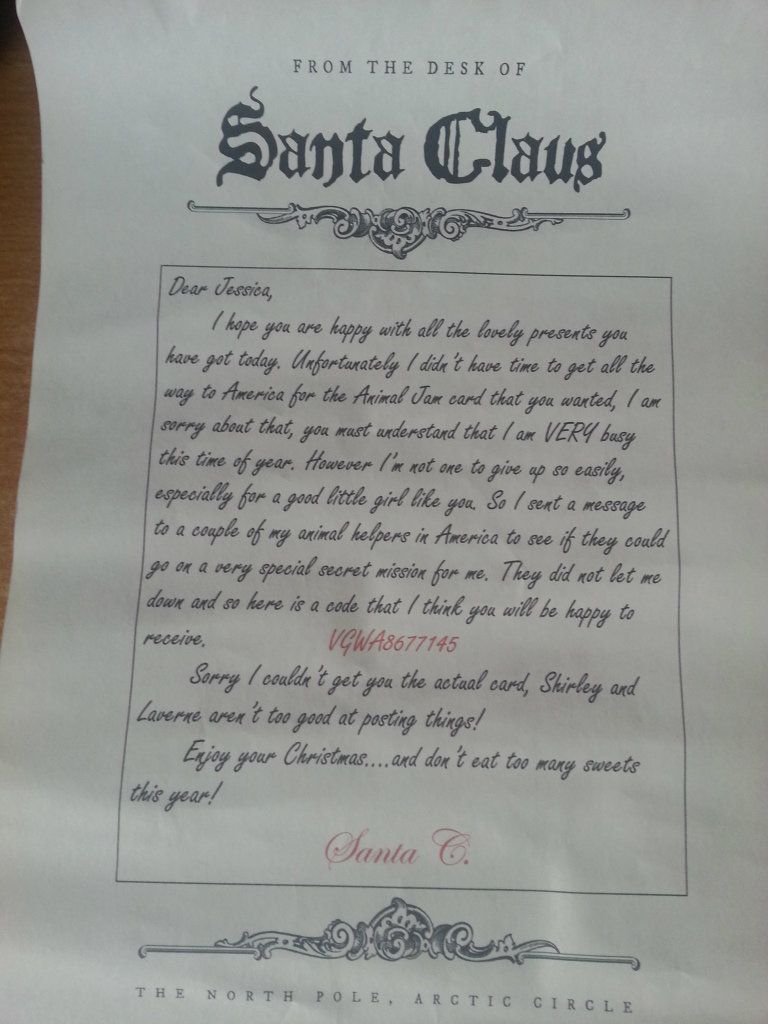 FROM THE DESK OF
Santa Claus
Dear Jessica,
I hope you are happy with all the lovely presents you
have got today. Unfortunately I didn't have time to get all the
way to America for the Animal Jam card that you wanted, I am
sorry about that, you must understand that I am VERY busy
this time of year. However I'm not one to give up so easily,
especially for a good little girl like you. So I sent a message
to a couple of my animal helpers in America to see if they could
go on a very special secret mission for me. They did not let me
down and so here is a code that I think you will be happy to
receive. VGWA8677145
Sorry I couldn't get you the actual card, Shirley and
Laverne aren't too good at posting things!
Enjoy your Christmas....and don't eat too many sweets
this year!
Santa C.
THE NORTH POLE, ARCTIC CIRCLE